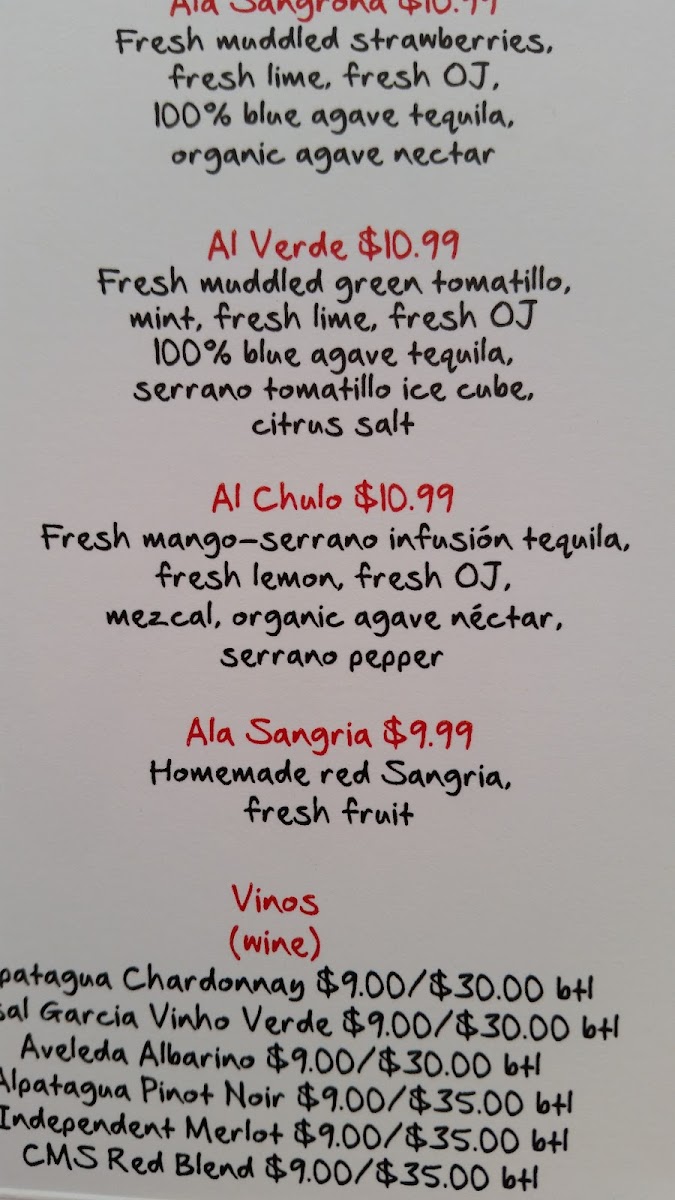 Ala Sangrona $10.99
Fresh muddled strawberries,
fresh lime, fresh OJ,
100% blue agave tequila,
organic agave nectar
Al Verde $10.99
Fresh muddled green tomatillo,
mint, fresh lime, fresh OJ
100% blue agave tequila,
serrano tomatillo ice cube,
citrus salt
Al Chulo $10.99
Fresh mango-serrano infusión tequila,
fresh lemon, fresh OJ,
mezcal, organic agave néctar,
serrano pepper
Ala Sangria $9.99
Homemade red Sangria,
fresh fruit
Vinos
(wine)
patagua Chardonnay $9.00/$30.00 btl
sal Garcia Vinho Verde $9.00/$30.00 btl
Aveleda Albarino $9.00/$30.00 btl
Alpatagua Pinot Noir $9.00/$35.00 btl
Independent Merlot $9.00/$35.00 btl
CMS Red Blend $9.00/$35.00 btl